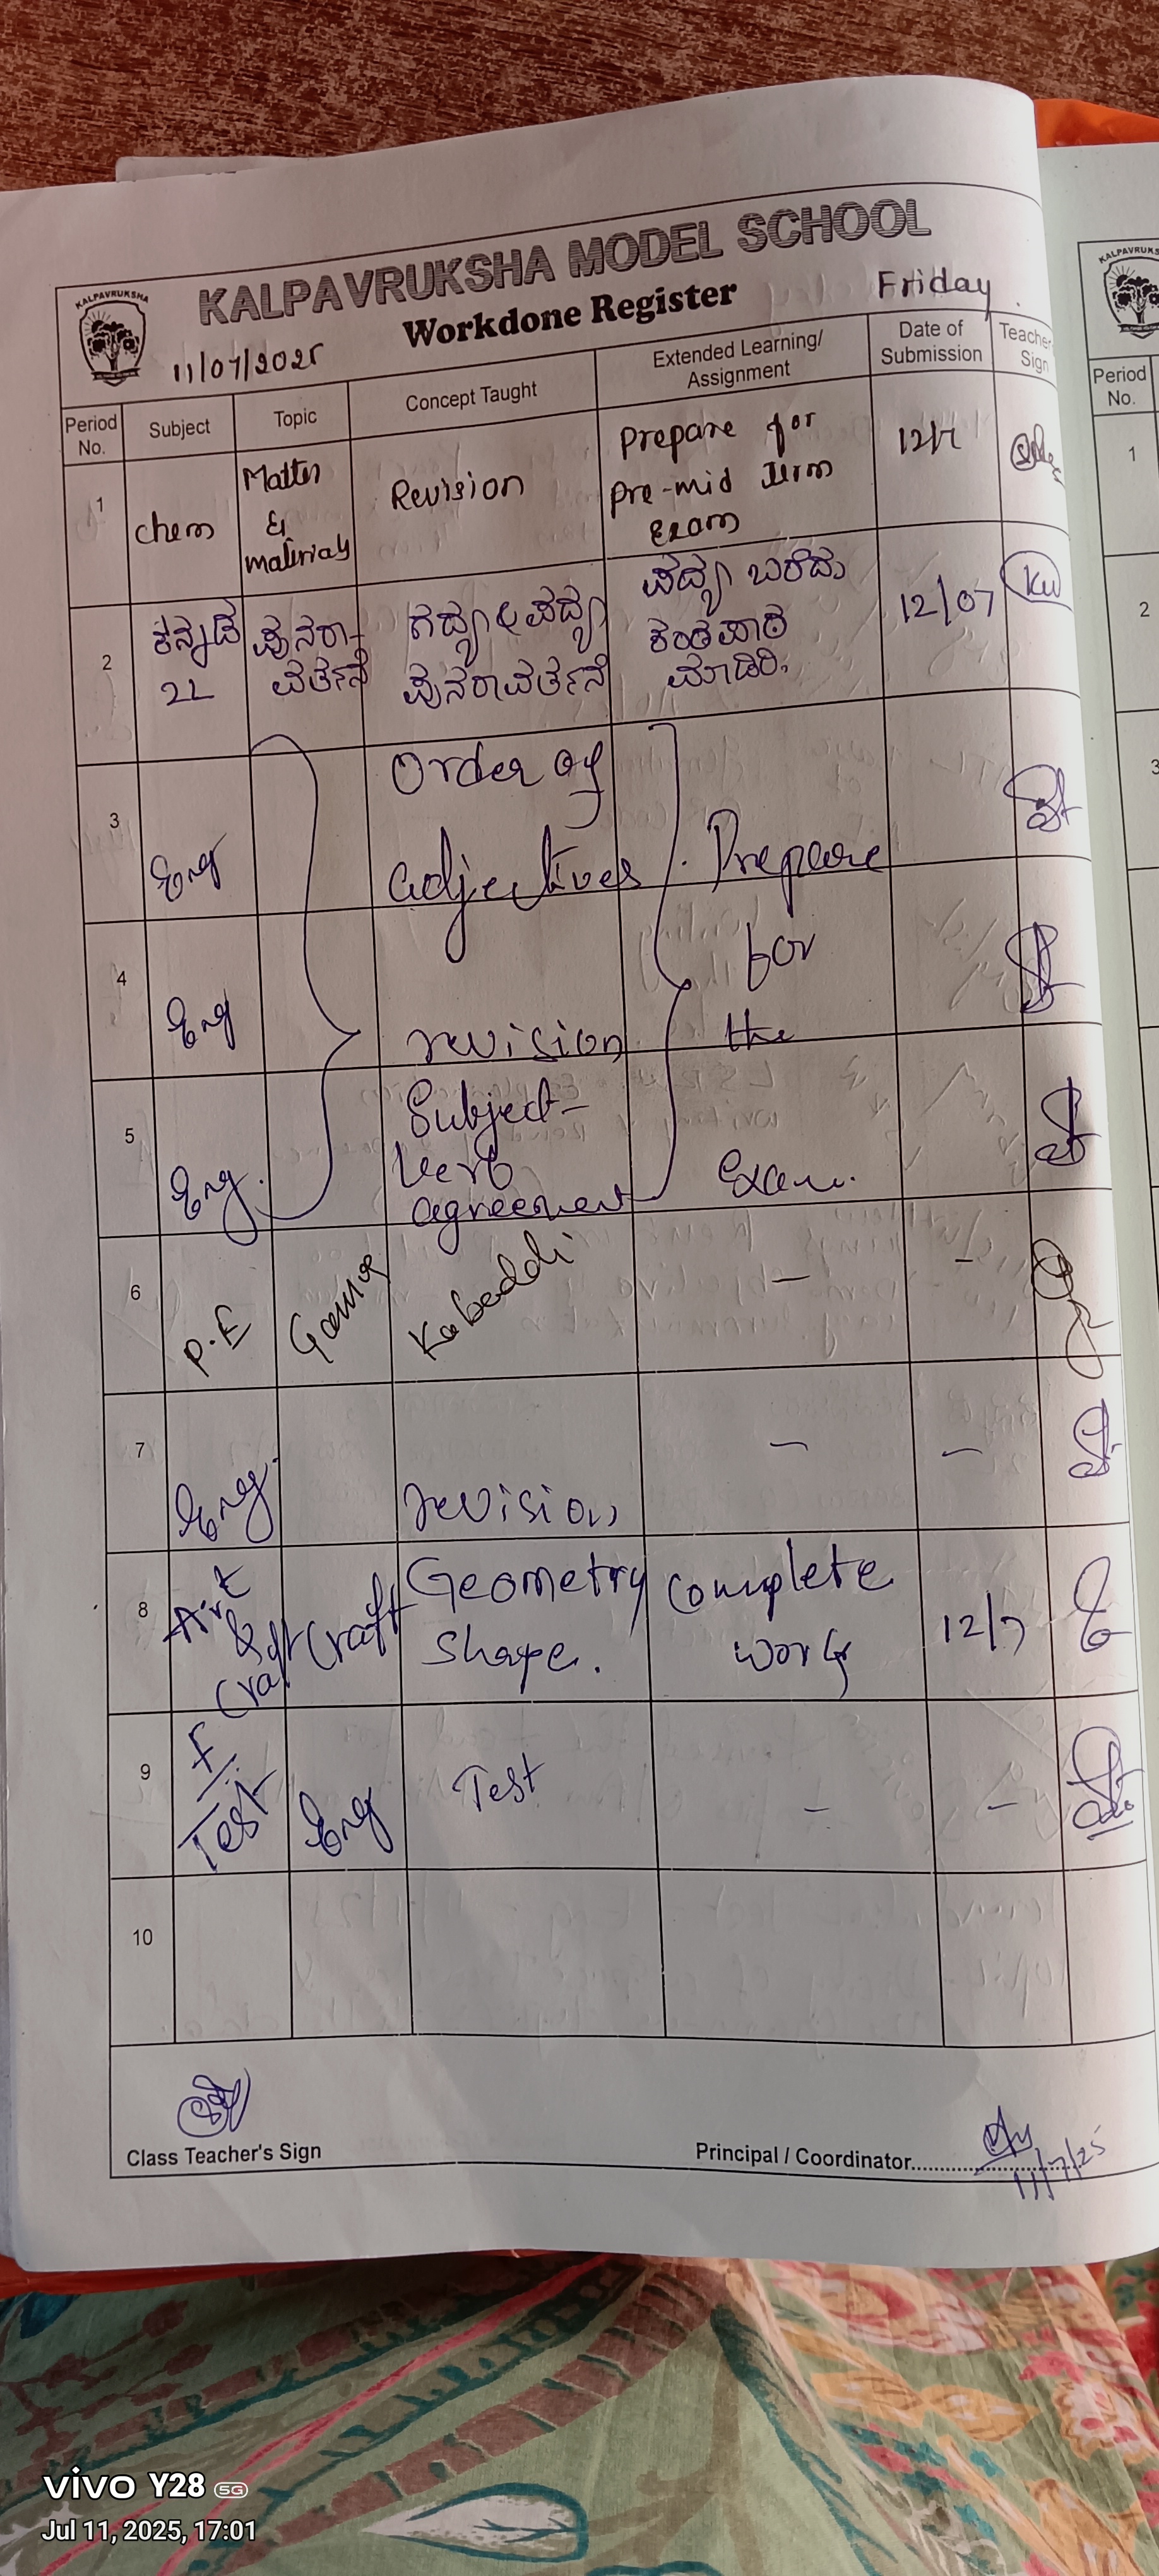 KALPAVRUKSHA
KALPAVRUKSHA MODEL SCHOOL
Workdone Register
Friday
11/07/2025
Period No.
Subject
Topic
Concept Taught
Extended Learning/
Assignment
Date of
Submission
Teacher
Sign
1
chem
Matter
&
materials
Revision
Prepare for
pre-mid term
Exam
12/7
2
ಕನ್ನಡ
2L
ಪುನರಾ-
ವರ್ತನೆ
ಗದ್ಯ & ಪದ್ಯ
ಪುನರಾವರ್ತನೆ
ಪದ್ಯ ಬರೆದು
ಕಂಠಪಾಠ
ಮಾಡಿರಿ.
12/07
KW
3
Eng
Order of
adjectives
Prepare
4
Eng
revision
for
the
5
Eng.
Subject-
verb
agreement
Exam.
6
P.E
Game
Kabaddi
-
-
7
Eng.
revision
-
-
8
Art
&
Craft
Craft
Geometry
Shape.
Complete
work
12/7
9
Test
Eng
Test
-
-
10
Class Teacher's Sign
Principal / Coordinator
11/7/25
KALPAVRUKS
Period
No.
1
2
3
vivo Y28 5G
Jul 11, 2025, 17:01